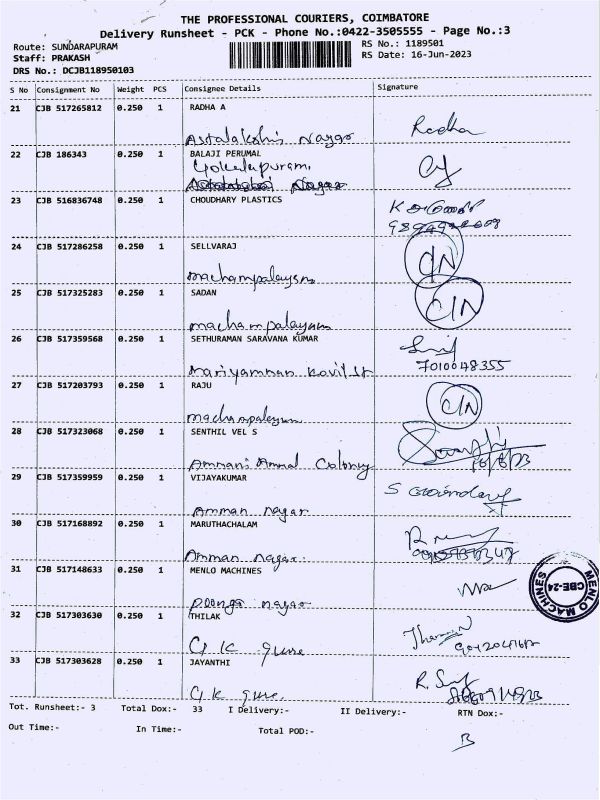 THE PROFESSIONAL COURIERS, COIMBATORE
Delivery Runsheet - PCK - Phone No.:0422-3505555 - Page No.:3
Route: SUNDARAPURAM RS No.: 1189501
Staff: PRAKASH RS Date: 16-Jun-2023
DRS No.: DCJB118950103
S No Consignment No Weight PCS Consignee Details Signature
21 CJB 517265812 0.250 1 RADHA A
Astalakshi Nagar Radha
22 CJB 186343 0.250 1 BALAJI PERUMAL
Gokulapuram.
Nagar
23 CJB 516836748 0.250 1 CHOUDHARY PLASTICS
24 CJB 517286258 0.250 1 SELLVARAJ
machampalayam C/N
25 CJB 517325283 0.250 1 SADAN C/N
machampalayam
26 CJB 517359568 0.250 1 SETHURAMAN SARAVANA KUMAR
Mariyamman Kovil St 7010048355
27 CJB 517203793 0.250 1 RAJU C/N
machampalayam
28 CJB 517323068 0.250 1 SENTHIL VEL S
Ammani Ammal Colony 16/6/23
29 CJB 517359959 0.250 1 VIJAYAKUMAR
Amman nagar
30 CJB 517168892 0.250 1 MARUTHACHALAM
Amman nagar.
31 CJB 517148633 0.250 1 MENLO MACHINES
poonga nagar MENLO MACHINES CBE-24
32 CJB 517303630 0.250 1 THILAK
G K
33 CJB 517303628 0.250 1 JAYANTHI
G K
Tot. Runsheet:- 3 Total Dox:- 33 I Delivery:- II Delivery:- RTN Dox:-
Out Time:- In Time:- Total POD:-
B